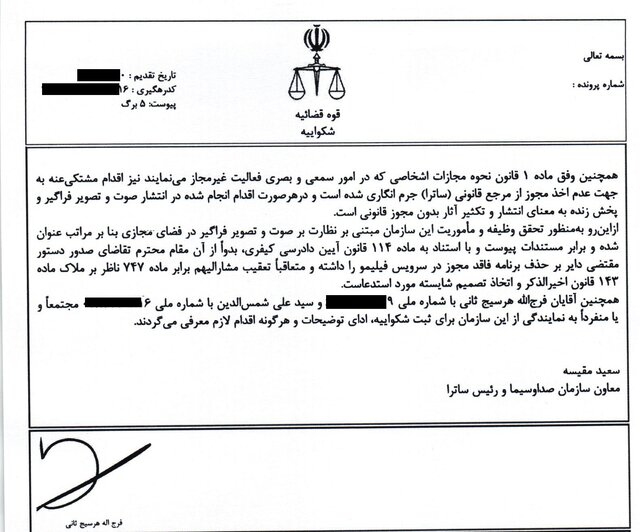 بسمه تعالی
شماره پرونده :
قوه قضائیه
شکواییه
تاریخ تقدیم : ۰
کدرهگیری : ۱۶
پیوست: ۵ برگ
همچنین وفق ماده ۱ قانون نحوه مجازات اشخاصی که در امور سمعی و بصری فعالیت غیرمجاز می‌نمایند نیز اقدام مشتکی‌عنه به
جهت عدم اخذ مجوز از مرجع قانونی (ساترا) جرم انگاری شده است و درهرصورت اقدام انجام شده در انتشار صوت و تصویر فراگیر و
پخش زنده به معنای انتشار و تکثیر آثار بدون مجوز قانونی است.
ازاین‌رو به‌منظور تحقق وظیفه و مأموریت این سازمان مبتنی بر نظارت بر صوت و تصویر فراگیر در فضای مجازی بنا بر مراتب عنوان
شده و برابر مستندات پیوست و با استناد به ماده ۱۱۴ قانون آیین دادرسی کیفری، بدواً از آن مقام محترم تقاضای صدور دستور
مقتضی دایر بر حذف برنامه فاقد مجوز در سرویس فیلیمو را داشته و متعاقباً تعقیب مشارالیهم برابر ماده ۷۴۷ ناظر بر ملاک ماده
۱۴۳ قانون اخیرالذکر و اتخاذ تصمیم شایسته مورد استدعاست.
همچنین آقایان فرج‌الله هرسیج ثانی با شماره ملی ۹ و سید علی شمس‌الدین با شماره ملی ۶ مجتمعاً و
یا منفرداً به نمایندگی از این سازمان برای ثبت شکواییه، ادای توضیحات و هرگونه اقدام لازم معرفی می‌گردند.
سعید مقیسه
معاون سازمان صداوسیما و رئیس ساترا
فرج اله هرسیج ثانی